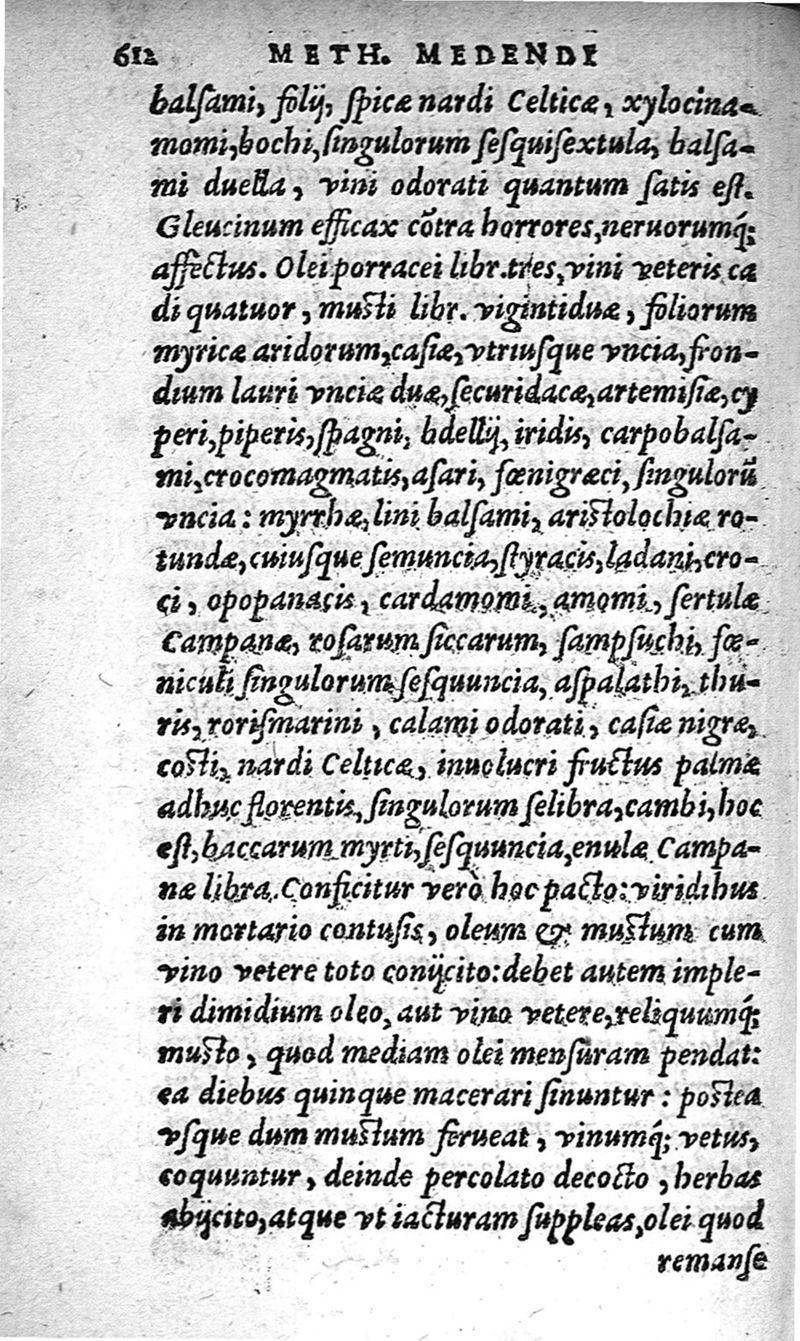 612 METH. MEDENDI
balſami, folij, ſpicæ nardi Celticæ, xylocina-
momi, bochi, ſingulorum ſeſquiſextula, balſa-
mi duella, vini odorati quantum ſatis eſt.
Gleucinum efficax cõtra horrores, neruorumq́;
affectus. Olei porracei libr. tres, vini veteris ca
di quatuor, muſti libr. vigintiduæ, foliorum
myricæ aridorum, caſiæ, vtriuſque vncia, fron-
dium lauri vnciæ duæ, ſecuridacæ, artemiſiæ, cy
peri, piperis, ſpagni, bdellij, iridis, carpobalſa-
mi, crocomagmatis, aſari, fœnigræci, ſingulorũ
vncia: myrrhæ, lini balſami, ariſtolochiæ ro-
tundæ, cuiuſque ſemuncia, ſtyracis, ladani, cro-
ci, opopanacis, cardamomi, amomi, ſertulæ
Campanæ, roſarum ſiccarum, ſampſuchi, fœ-
niculi ſingulorum ſeſquuncia, aſpalathi, thu-
ris, roriſmarini, calami odorati, caſiæ nigræ,
coſti, nardi Celticæ, inuolucri fructus palmæ
adhuc florentis, ſingulorum ſelibra, cambi, hoc
eſt, baccarum myrti, ſeſquuncia, enulæ Campa-
næ libra. Conficitur verò hoc pacto: viridibus
in mortario contuſis, oleum & muſtum cum
vino vetere toto conijcito: debet autem imple-
ri dimidium oleo, aut vino vetere, reliquumq́;
muſto, quod mediam olei menſuram pendat:
ea diebus quinque macerari ſinuntur: poſtea
vſque dum muſtum ferueat, vinumq́; vetus,
coquuntur, deinde percolato decocto, herbas
abijcito, atque vt iacturam ſuppleas, olei quod
remanſe